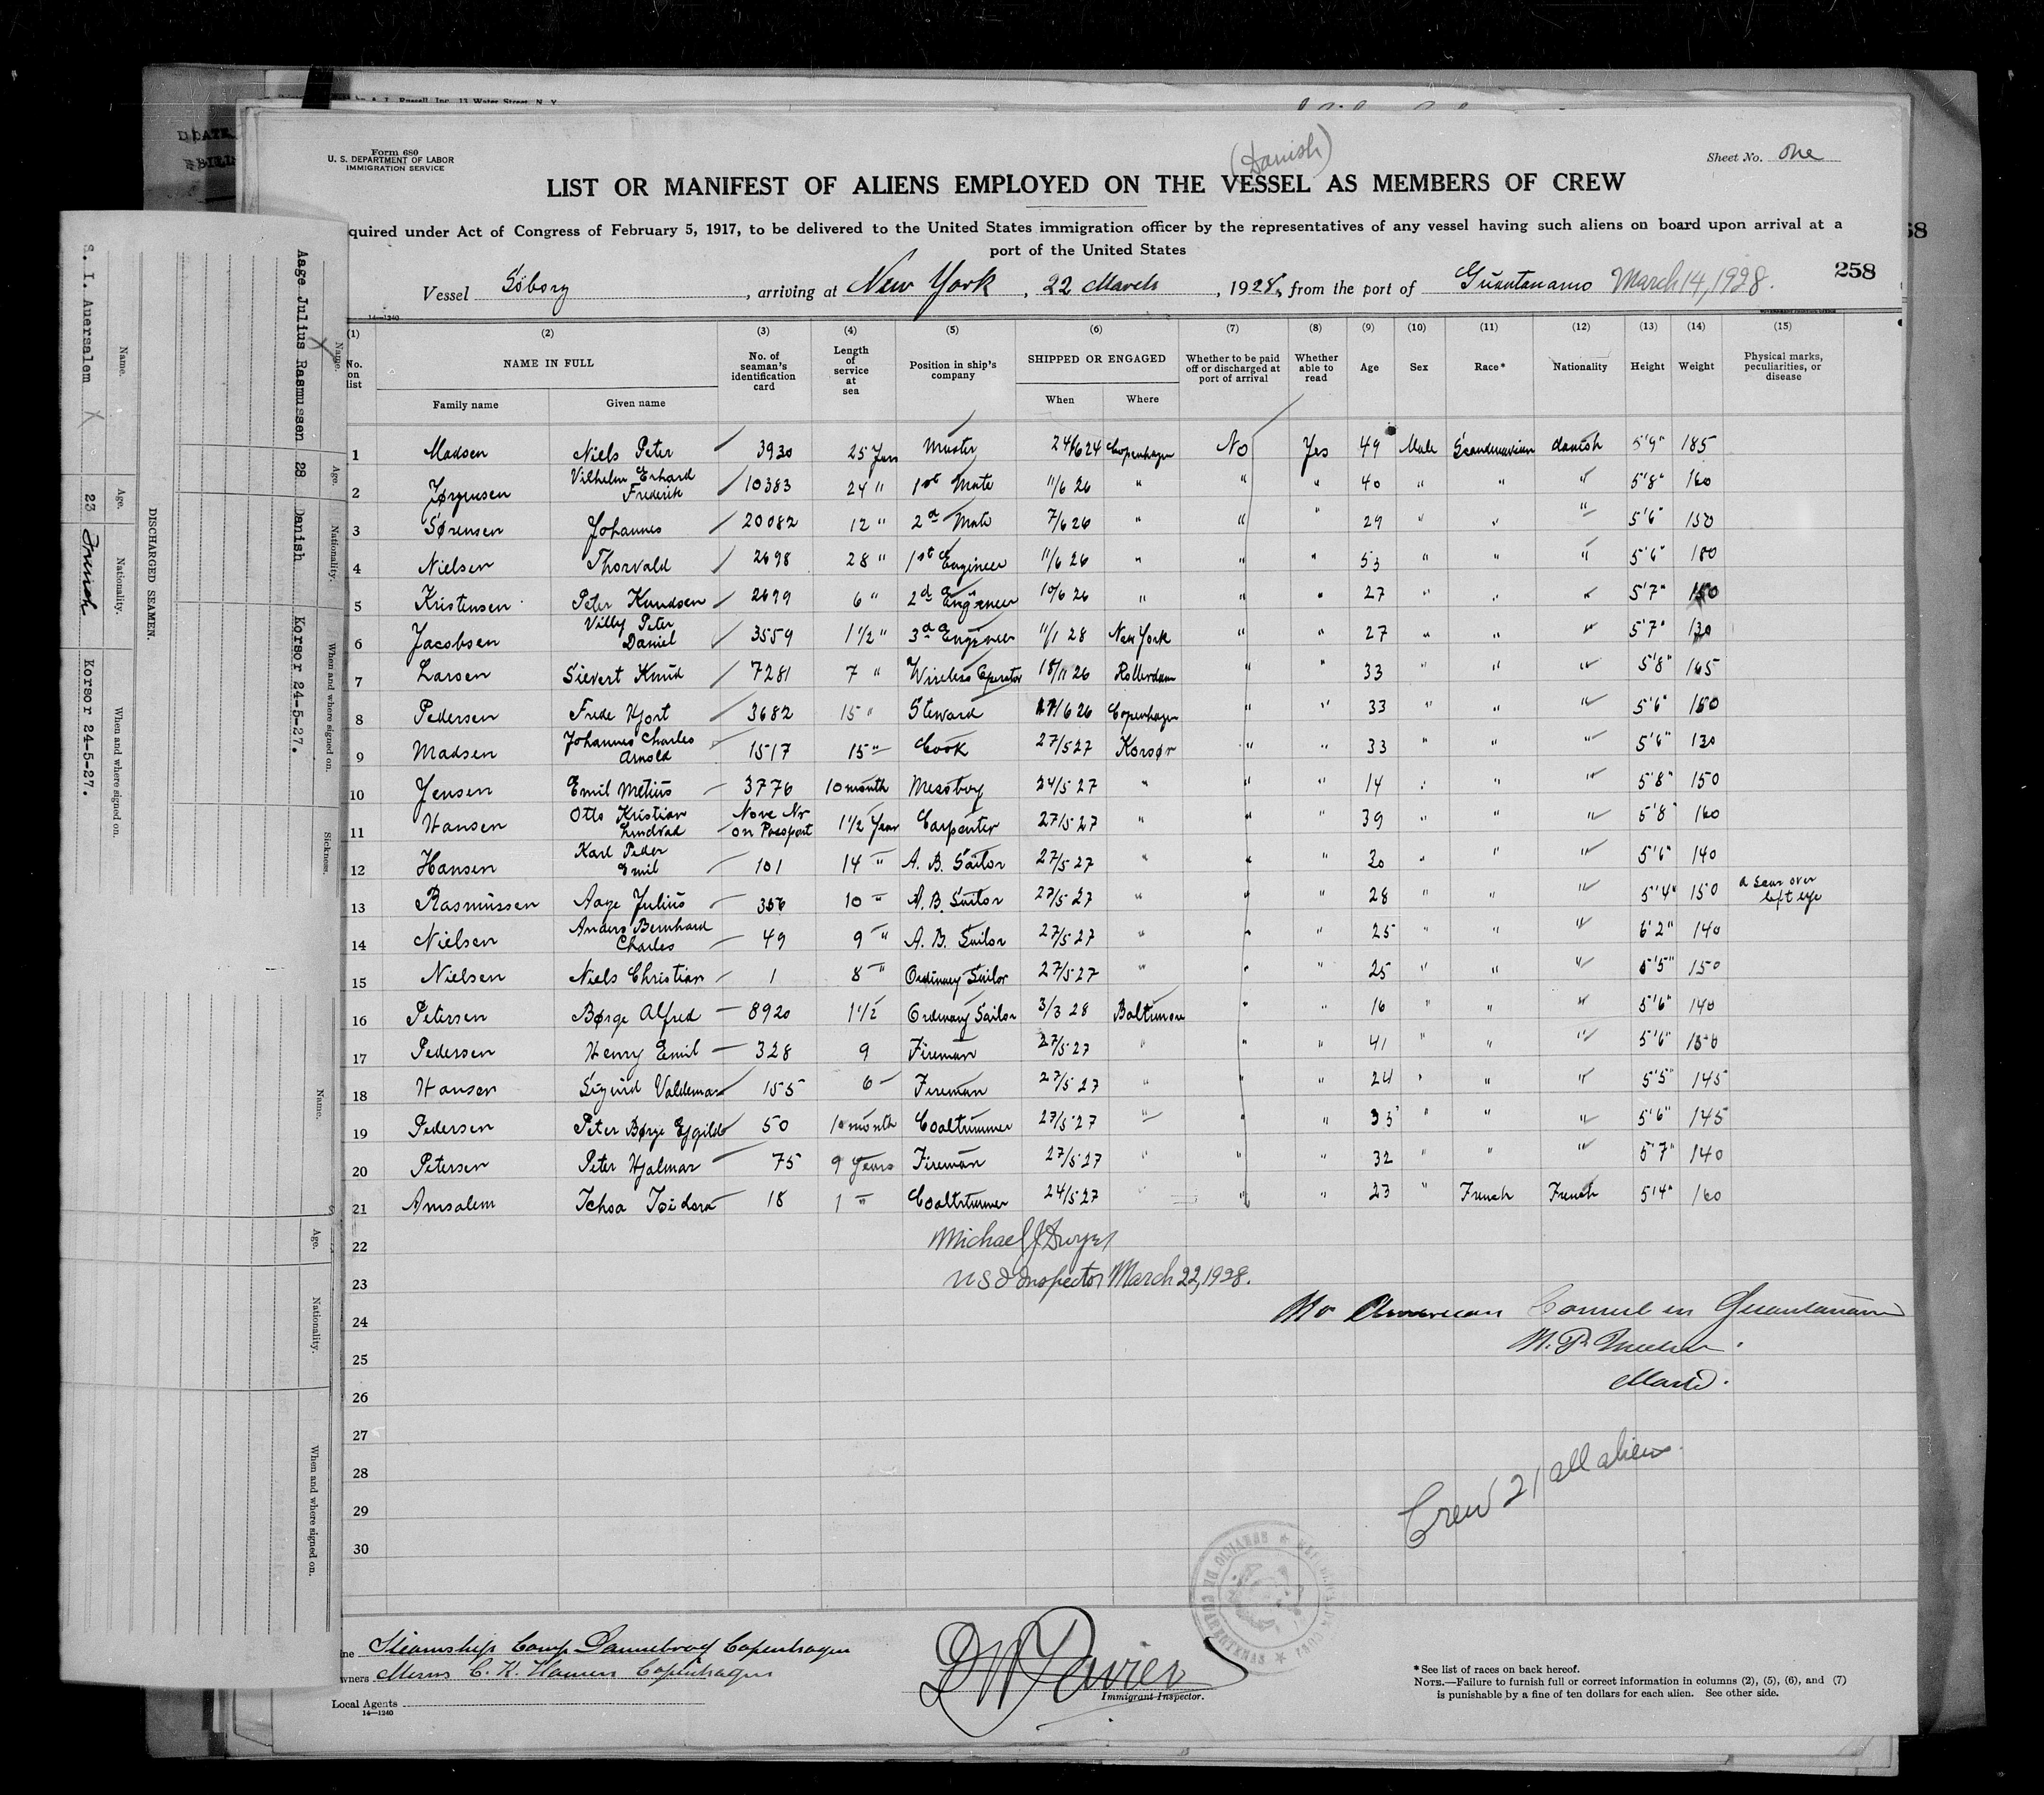 Russell Inc. 13 Water Street, N. Y.
Form 680
U. S. DEPARTMENT OF LABOR
IMMIGRATION SERVICE
(Danish)
Sheet No. One
LIST OR MANIFEST OF ALIENS EMPLOYED ON THE VESSEL AS MEMBERS OF CREW
quired under Act of Congress of February 5, 1917, to be delivered to the United States immigration officer by the representatives of any vessel having such aliens on board upon arrival at a
port of the United States
258
Vessel Söborg, arriving at New York, 22 March, 1928, from the port of Guantanamo March 14, 1928.
14—1240
(1) (2) (3) (4) (5) (6) (7) (8) (9) (10) (11) (12) (13) (14) (15)
No. on list NAME IN FULL No. of seaman's identification card Length of service at sea Position in ship's company SHIPPED OR ENGAGED Whether to be paid off or discharged at port of arrival Whether able to read Age Sex Race* Nationality Height Weight Physical marks, peculiarities, or disease
Family name Given name When Where
1 Madsen Niels Peter 3930 25 Years Master 24/6 24 Copenhagen No Yes 49 Male Scandinavian danish 5'9" 185
2 Jørgensen Vilhelm Erhard Frederik 10383 24 " 1st Mate 11/6 26 " " " 40 " " " 5'8" 160
3 Sørensen Johannes 20082 12 " 2d Mate 7/6 26 " " " 29 " " " 5'6" 150
4 Nielsen Thorvald 2698 28 " 1st Engineer 11/6 26 " " " 53 " " " 5'6" 180
5 Kristensen Peter Knudsen 2699 6 " 2d Engineer 10/6 26 " " " 27 " " " 5'7" 150
6 Jacobsen Villy Peter Daniel 3559 1 1/2 " 3d Engineer 11/1 28 New York " " 27 " " " 5'7" 130
7 Larsen Sievert Knud 7281 7 " Wireless Operator 18/11 26 Rotterdam " " 33 " " " 5'8" 165
8 Pedersen Frede Hjort 3682 15 " Steward 17/6 26 Copenhagen " " 33 " " " 5'6" 150
9 Madsen Johannes Charles Arnold 1517 15 " Cook 27/5 27 Korsør " " 33 " " " 5'6" 130
10 Jensen Emil Metius 3776 10 month Messboy 24/5 27 " " " 14 " " " 5'8" 150
11 Hansen Otto Kristian Lindvad None Nr on Passport 1 1/2 Year Carpenter 27/5 27 " " " 39 " " " 5'8 160
12 Hansen Karl Peder Emil 101 14 " A. B. Sailor 27/5 27 " " " 30 " " " 5'6" 140
13 Rasmussen Aage Julius 356 10 " A. B. Sailor 27/5 27 " " " 28 " " " 5'4" 150 a scar over left eye
14 Nielsen Anders Bernhard Charles 49 9 " A. B. Sailor 27/5 27 " " " 25 " " " 6'2" 140
15 Nielsen Niels Christian 1 8 " Ordinary Sailor 27/5 27 " " " 25 " " " 5'5" 150
16 Petersen Børge Alfred 8920 1 1/2 Ordinary Sailor 3/3 28 Baltimore " " 16 " " " 5'6" 140
17 Pedersen Henry Emil 328 9 Fireman 27/5 27 " " " 41 " " " 5'6" 150
18 Hansen Sigurd Valdemar 155 6 Fireman 27/5 27 " " " 24 " " " 5'5" 145
19 Pedersen Peter Børge Ejgild 50 10 month Coaltrimmer 27/5 27 " " " 35 " " " 5'6" 145
20 Petersen Peter Hjalmar 75 9 Years Fireman 27/5 27 " " " 32 " " " 5'7" 140
21 Amsalem Ichoa Isidora 18 1 " Coaltrimmer 24/5 27 " " " 23 " French French 5'4" 160
22 Michael J Dwyer
23 US Inspector March 22, 1928.
24 No American Consul in Guantanamo
25
Master.
26
27
28
29
30
Crew 21 all aliens
Steamship Comp Dannebrog Copenhagen
wners Messrs C. K. Hansen Copenhagen
Local Agents
14—1240
Immigrant Inspector.
*See list of races on back hereof.
NOTE.—Failure to furnish full or correct information in columns (2), (5), (6), and (7)
is punishable by a fine of ten dollars for each alien. See other side.
Name. Age. Nationality. When and where signed on. Sickness.
Aage Julius Rasmussen 28 Danish Korsor 24-5-27.
DISCHARGED SEAMEN.
Name. Age. Nationality. When and where signed on.
S. I. Auersalem X 23 French Korsor 24-5-27.
Name. Age. Nationality. When and where signed on.